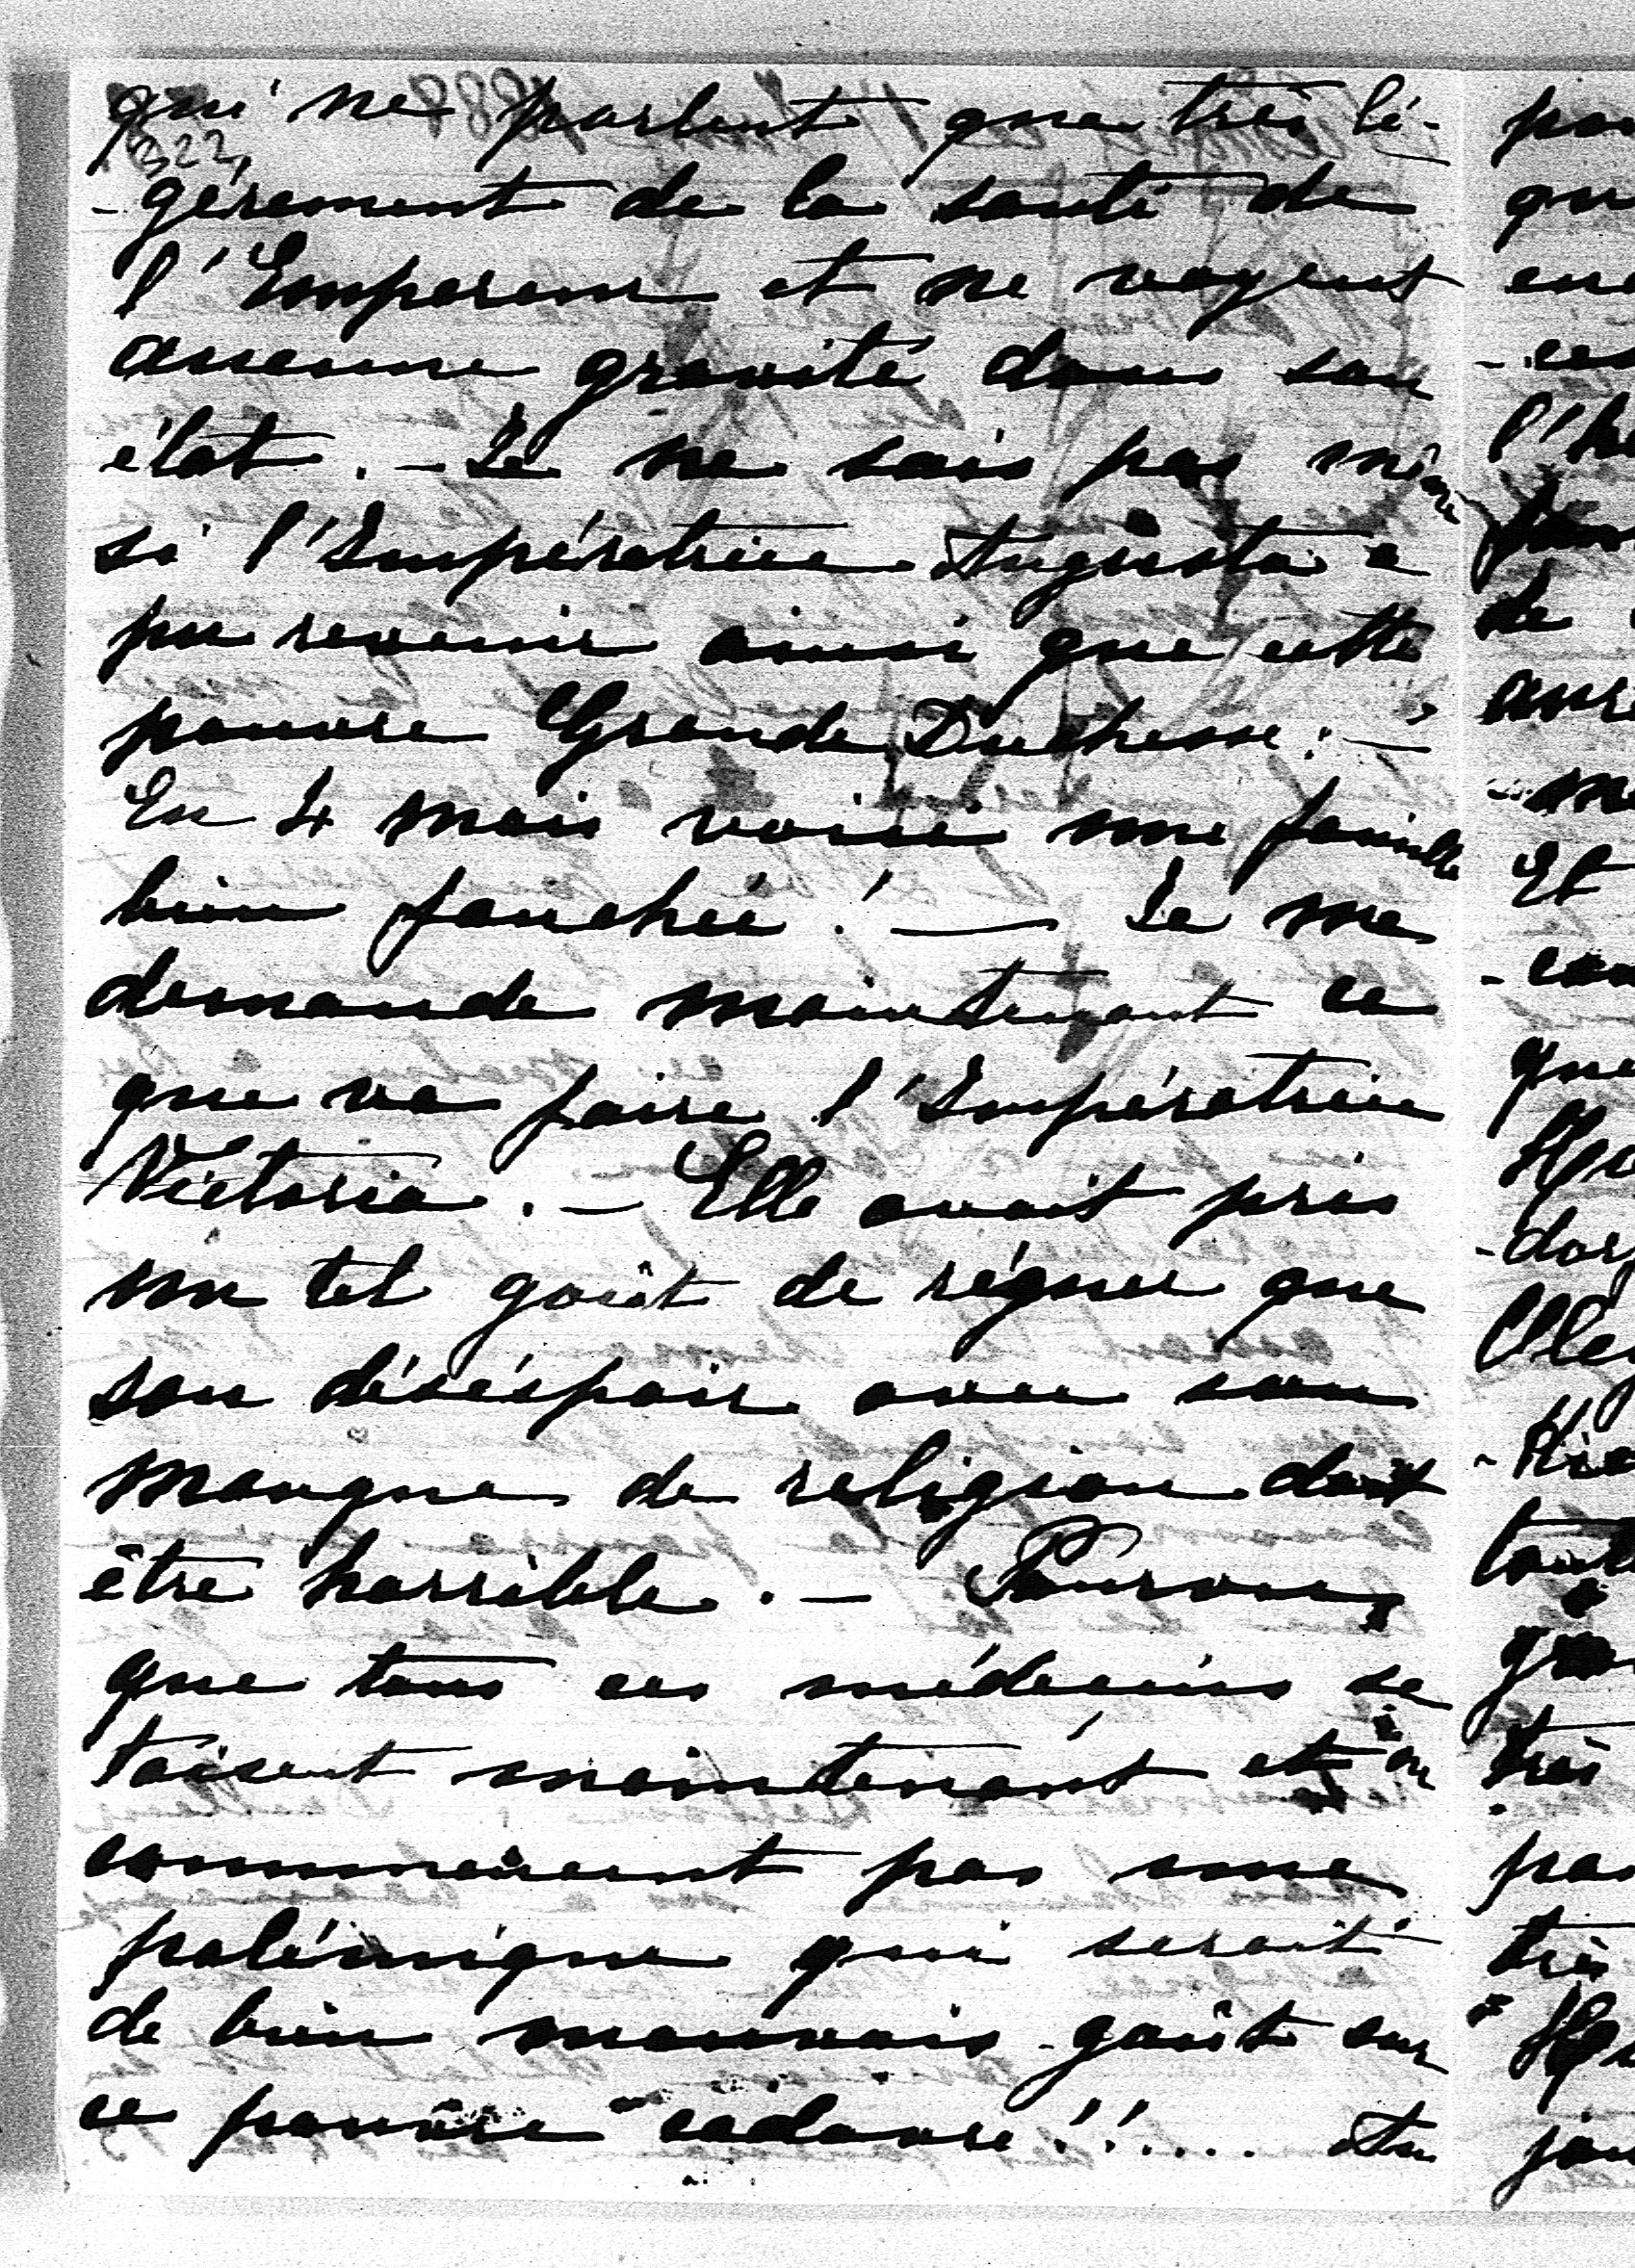 qui ne parlent que très lé-
322
-gèrement de la santé de
l'Empereur et ne voyent
aucune gravité dans son
état. - Je ne sais pas même
si l'Impératrice Augusta a
pu revenir ainsi que cette
pauvre Grande Duchesse. -
En 4 mois voici une famille
bien fauchée ! — Je me
demande maintenant ce
que va faire l'Impératrice
Victoria. - Elle avait pris
un tel goût de régner que
son déséspoir avec son
manque de religion doit
être horrible. - Pourvu
que tous ces médecins se
taisent maintenant et ne
commencent pas une
polémique qui serait
de bien mauvais goût sur
ce pauvre cadavre !!....